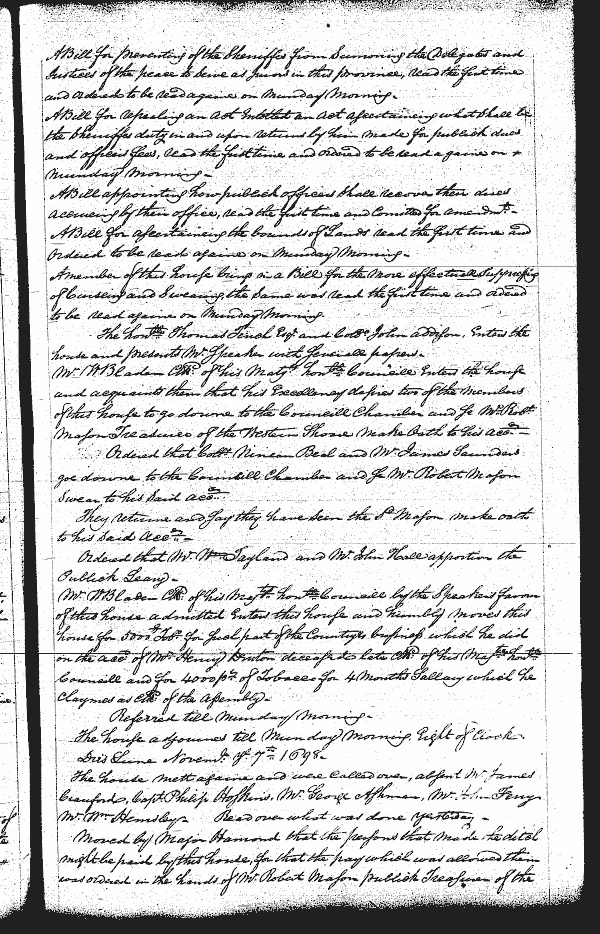 A Bill for preventing of the Sheriffes from Sumoning the Delegates and
Justices of the peace to Serve as Jurors in this province, read the first time
and ordered to be read againe on Munday Morning.
A Bill for repealing an act Intitled an act ascertaining what Shall be
the Sheriffes duty in and upon returns by him made for publick dues
and officers fees, read the first time and ordered to be read againe on +
Munday Morning.
A Bill appointing how publick officers Shall recover their dues
accrueing by their office, read the first time and Comitted for amendmts.
A Bill for assertaineing the bounds of Lands read the first time and
Ordered to be read againe on Munday Morning.
A member of this house bring in a Bill for the More effectuall Suppressing
of Curseing and Swearing, the Same was read the first time and ordered
to be read againe on Munday Morning.
The honble Thomas Tench Esqr. and Collo. John addison, Enters the
house and presents Mr. Speaker with Severall papers.
Mr. W Bladen Clk. of his Matys honble Councill Enters the house
and acquaints them that his Excellency desires two of the Members
of this house to go downe to the Councill Chamber and Se Mr. Robt.
Mason Treasurer of the Western Shoare Make Oath to his acct.
Ordered that Collo. Ninian Beal and Mr. James Saunders
goe downe to the Councill Chamber and Se Mr. Robert Mason
Swear to his Said acct.
They returne and Say they have Seen the Sd. Mason make oath
to his Said Acct.
Ordered that Mr. Wm. Tayland and Mr. John Hall apportion the
Publick Leavy.
Mr. W Bladen Clk. of his Matys. honble Councill by the Speakers favour
of this house admitted Enters this house and humbly moves this
house for 5000 Tob. for Such part of the Countrys business which he did
on the acct. of Mr. Henry Denton deceased late Clk. of his Matys honble
Councill and for 4000 pds. of Tobacco for 4 Months Sallary which he
Claymes as Clk. of the Assembly.
Referred till Munday Morning.
The house adjournes till Munday Morning Eight of Clock.
Died Lune Novemr. ye. 7th. 1698.
The house mett againe and were called over, absent Mr. James
Crauford, Capt. Philip Hoskins, Mr. George Ashman, Mr. John Ferry
Mr. Wm. Hemsley. Read over what was done yesterday.
Moved by Major Hamond that the persons that made the detal
might be paid by this house, for that the pay which was allowed them
was ordered in the hands of Mr. Robert Mason publick Treasurer of the